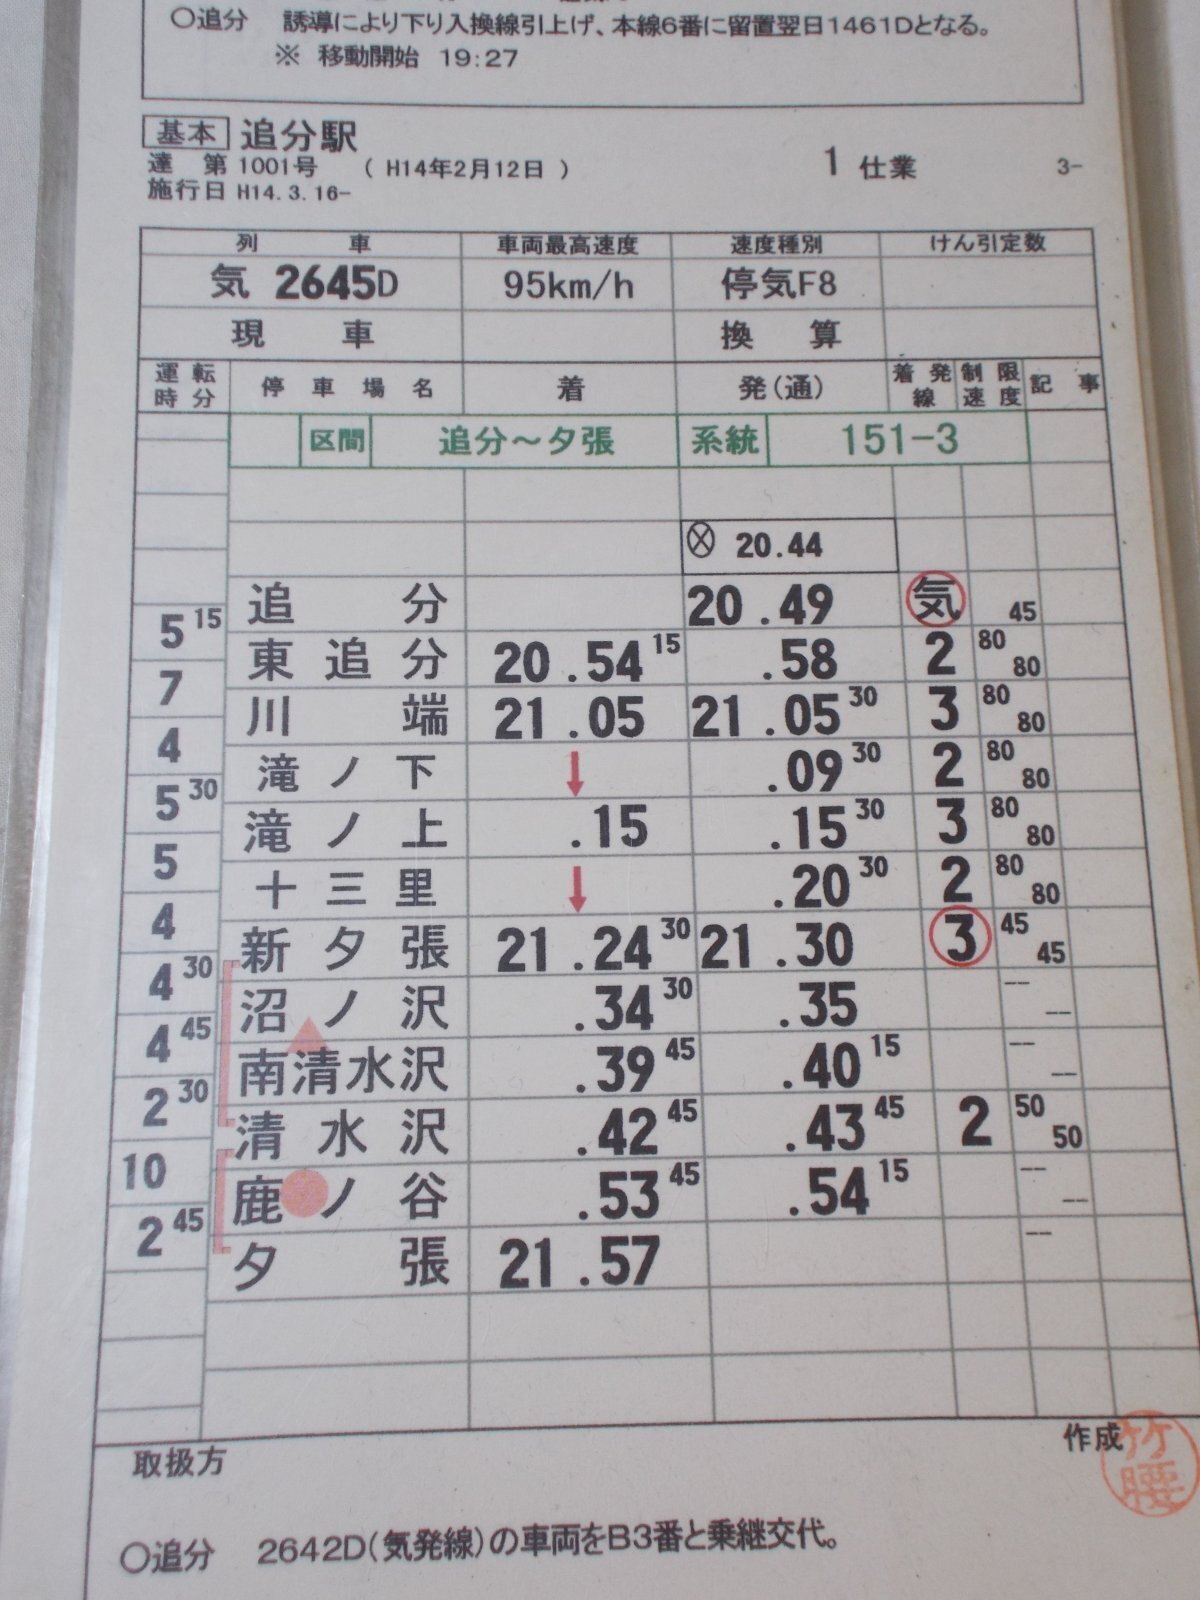 ○追分 誘導により下り入換線引上げ、本線6番に留置翌日1461Dとなる。
※ 移動開始 19:27
基本 追分駅
達 第 1001号 ( H14年2月12日 ) 1 仕業 3-
施行日 H14.3.16-
列 車 車両最高速度 速度種別 けん引定数
気 2645D 95km/h 停気F8
現 車 換 算
運転時分 停車場名 着 発(通) 着発線 制限速度 記事
区間 追分～夕張 系統 151-3
Ⓧ 20.44
追 分 20.49 気 45
5 15
東 追 分 20.54 15 .58 2 80 80
7
川 端 21.05 21.05 30 3 80 80
4
滝 ノ 下 ↓ .09 30 2 80 80
5 30
滝 ノ 上 .15 .15 30 3 80 80
5
十 三 里 ↓ .20 30 2 80 80
4
新 夕 張 21.24 30 21.30 3 45 45
4 30
沼 ノ 沢 .34 30 .35 -- --
4 45
南清水沢 .39 45 .40 15 -- --
2 30
清 水 沢 .42 45 .43 45 2 50 50
10
鹿 ノ 谷 .53 45 .54 15 -- --
2 45
夕 張 21.57 --
取扱方 作成 竹腰
○追分 2642D(気発線)の車両をB3番と乗継交代。